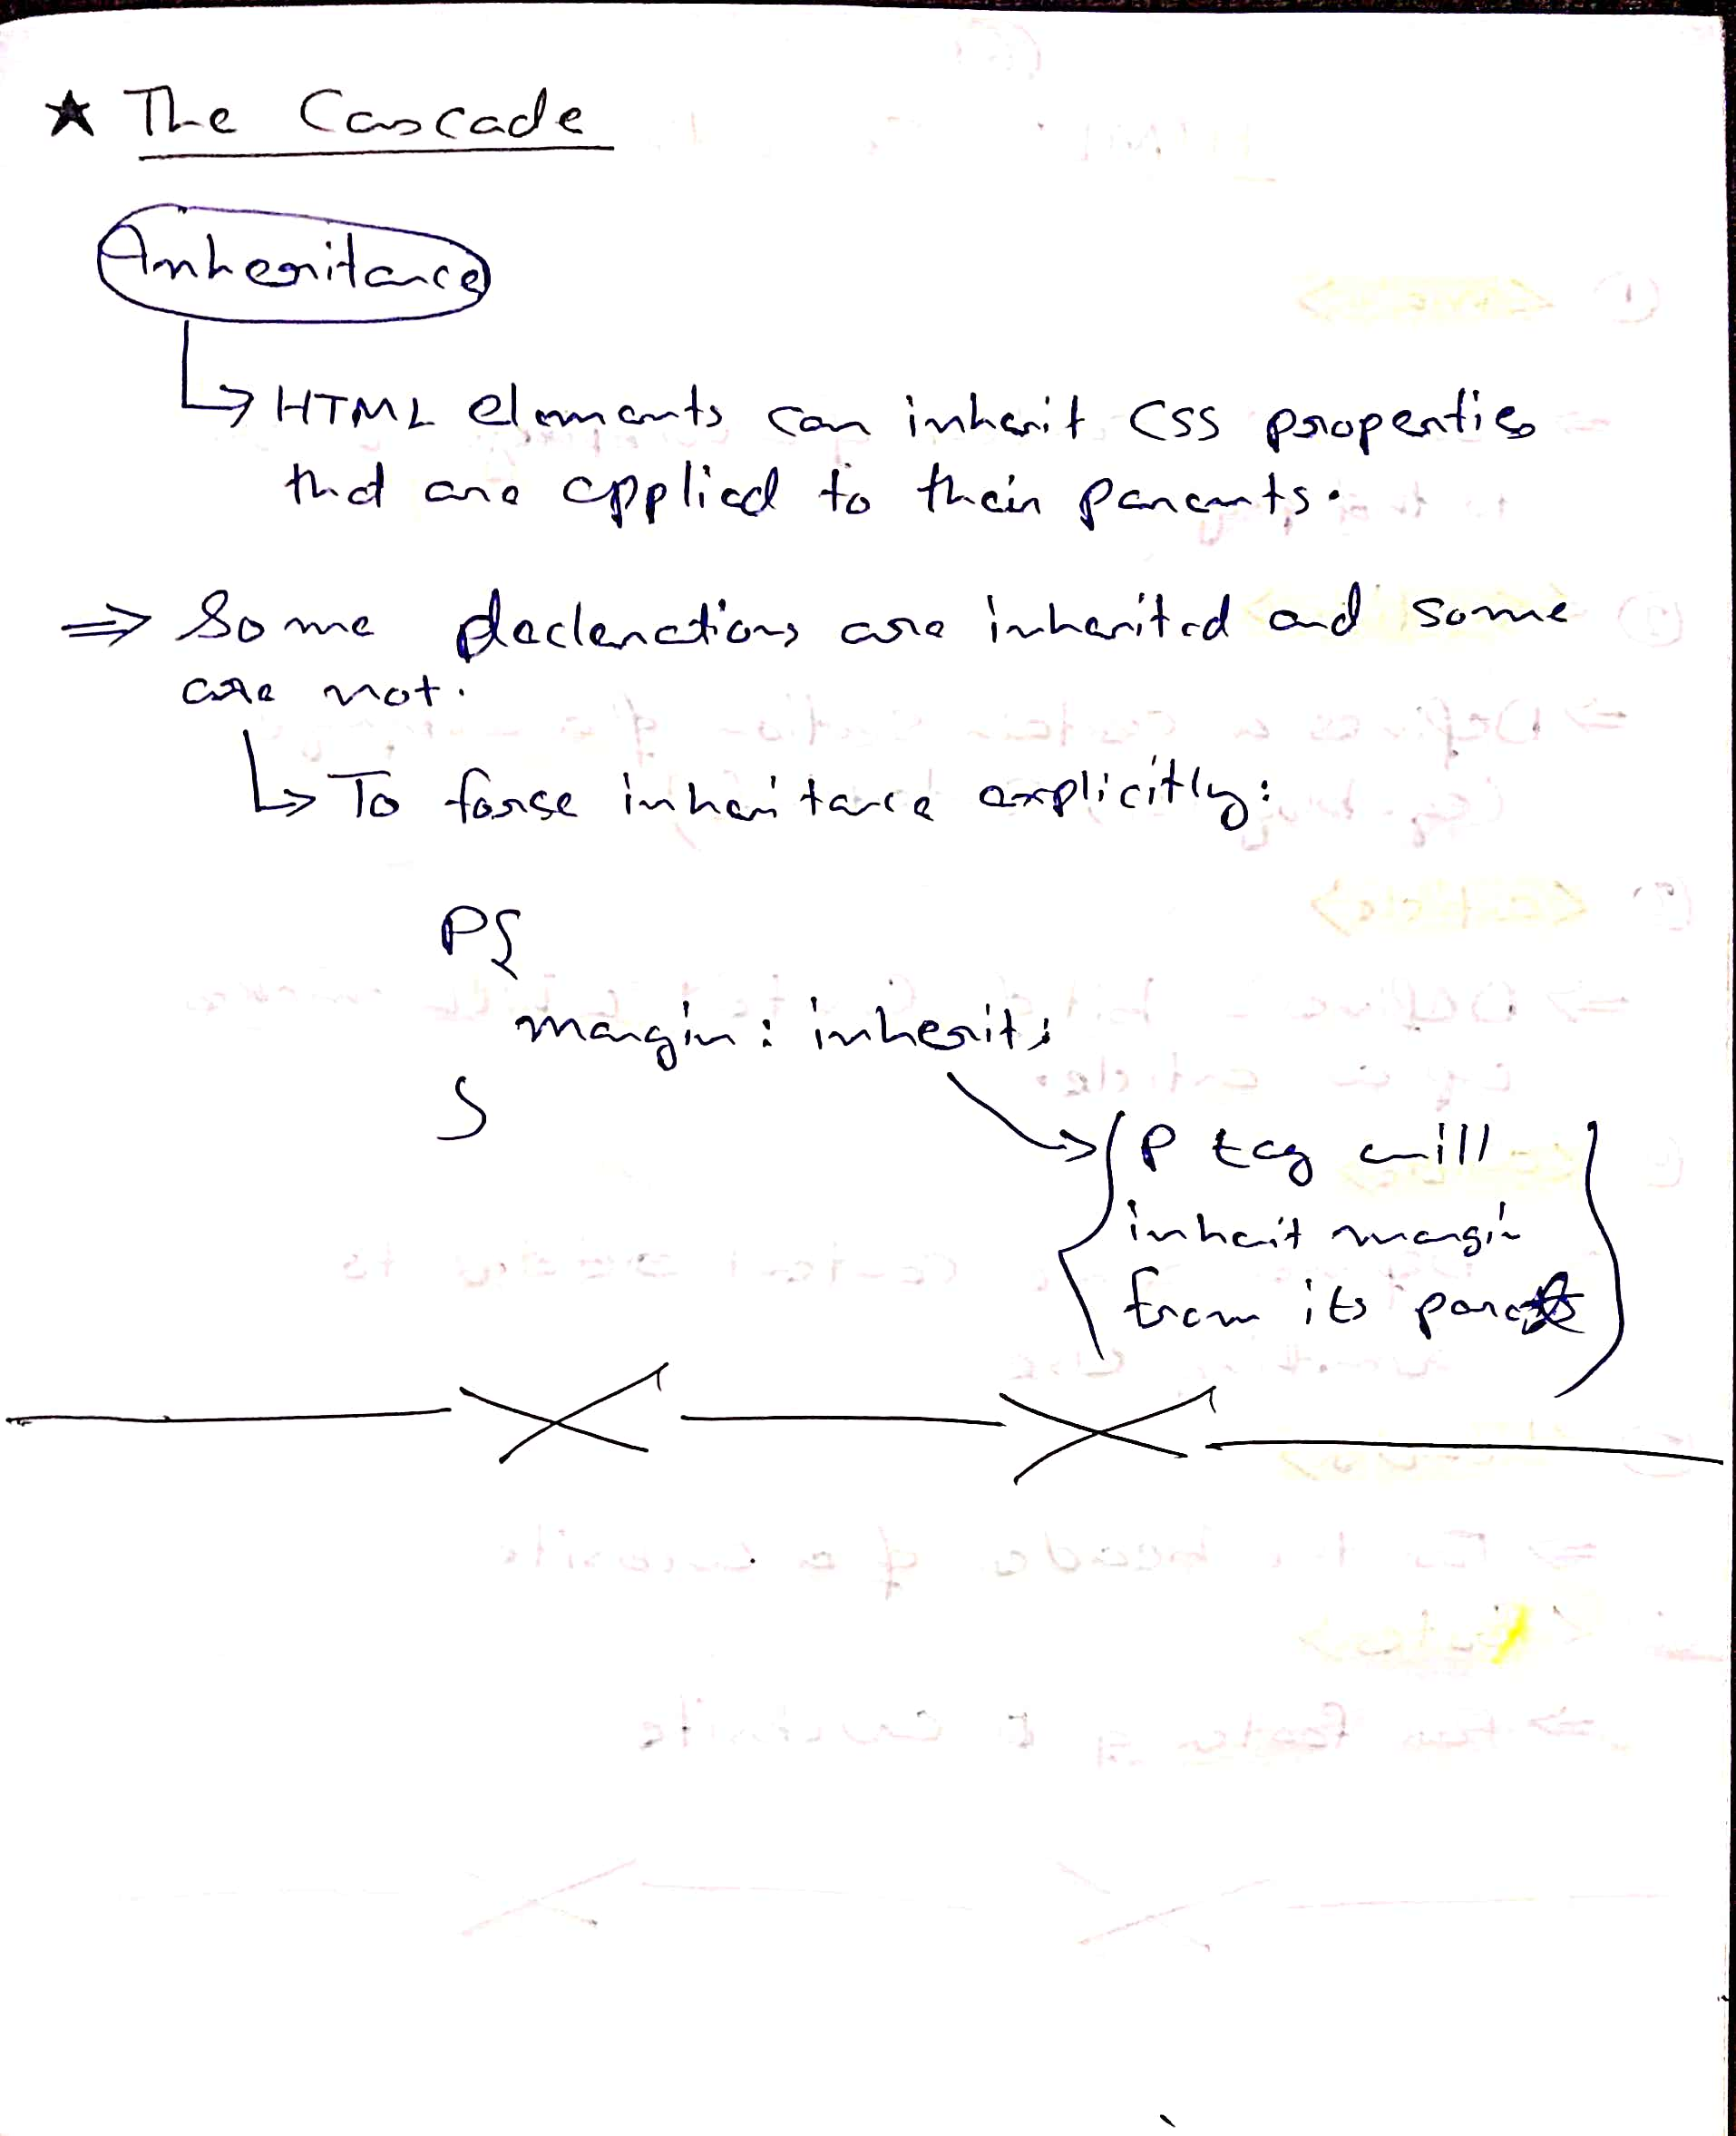 ★ The Cascade
Inheritance
↳ HTML elements can inherit CSS properties
that are applied to their parents.
⇒ Some declarations are inherited and some
are not.
↳ To force inheritance explicitly:
P{
margin: inherit;
}
→ { P tag will
inherit margin
from its parent }